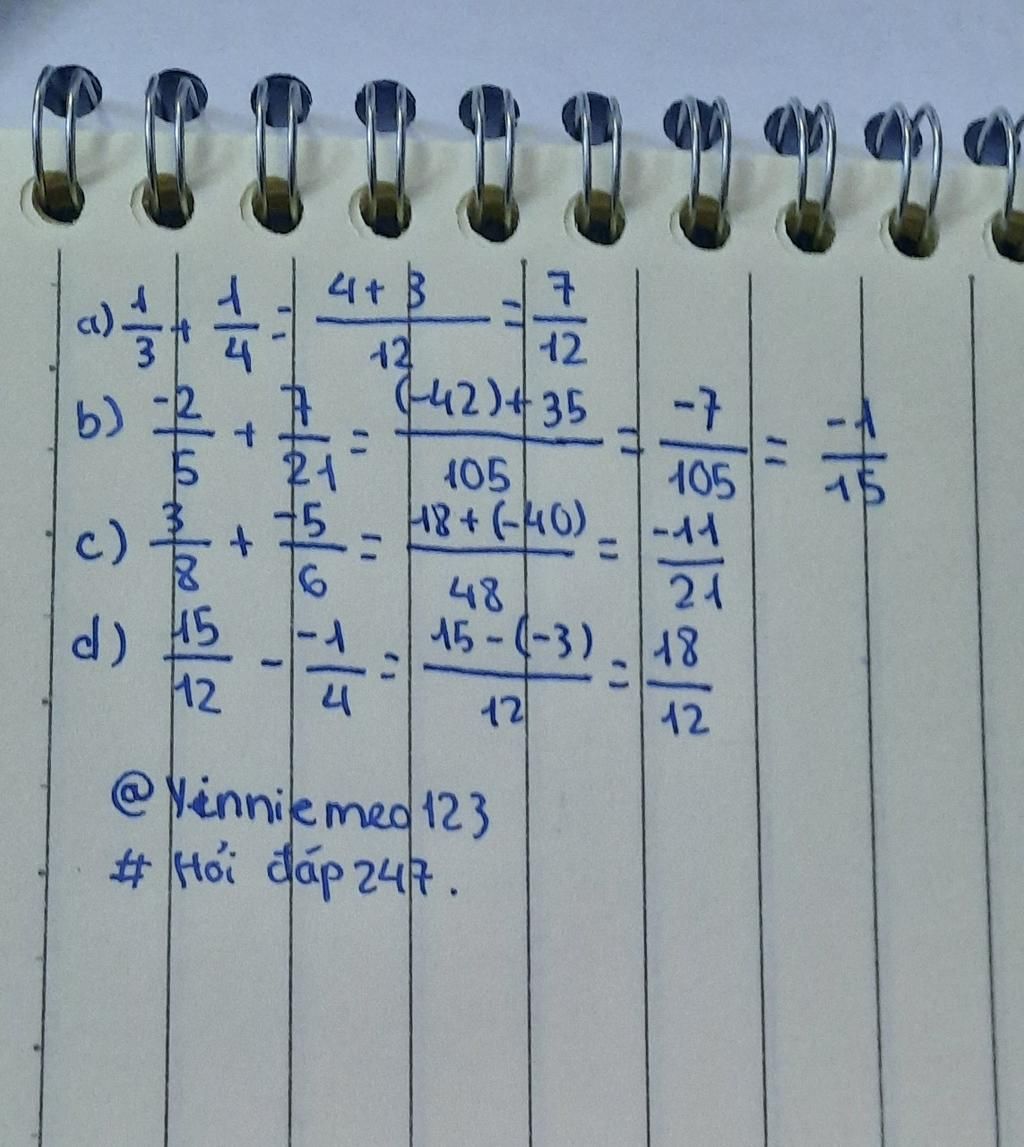 a) 1/3 + 1/4 = 4 + 3/12 = 7/12
b) -2/5 + 7/21 = (-42) + 35/105 = -7/105 = -1/15
c) 3/8 + -5/6 = 18 + (-40)/48 = -11/21
d) 15/12 - -1/4 = 15 - (-3)/12 = 18/12
@Yinniemeo123
# Hỏi đáp 247.